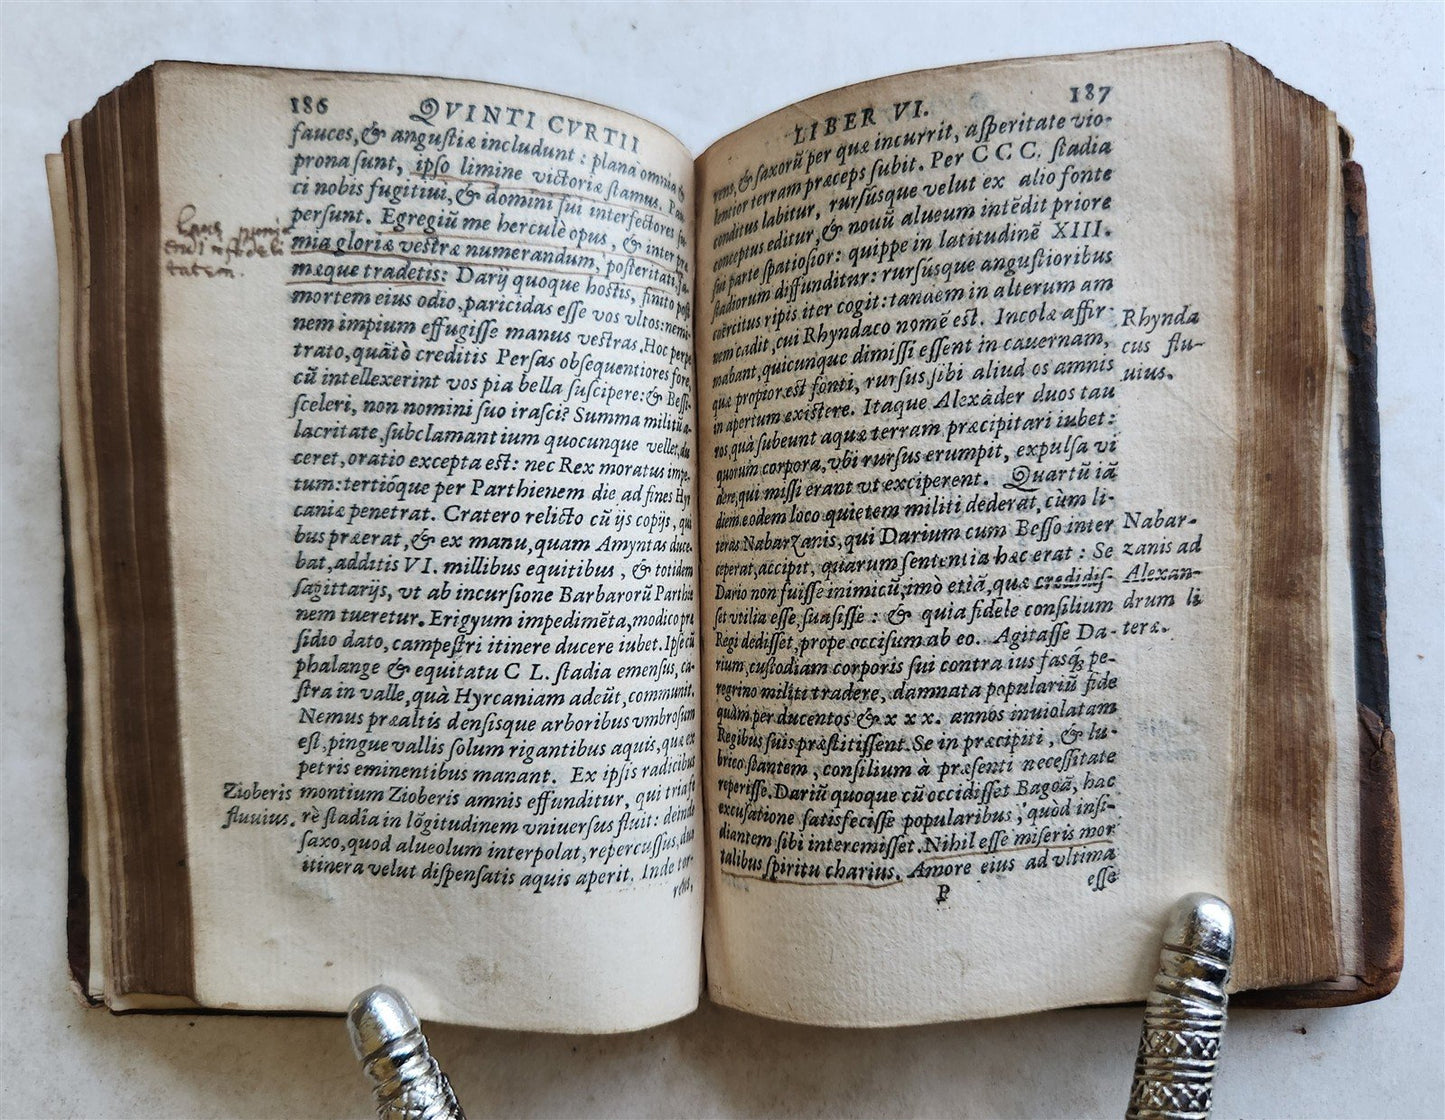 186
QVINTI CVRTII
fauces, & angustiæ includunt : plana omnia &
prona sunt, ipso limine victoriæ stamus. Pau
ci nobis fugitiui, & domini sui interfectores su
persunt. Egregiũ me herculè opus, & inter pri
mia gloriæ vestræ numerandum, posteritati, fa-
mæque tradetis: Darij quoque hostis, finito post
mortem eius odio, paricidas esse vos vltos: nemi
nem impium effugisse manus vestras. Hoc perpe
trato, quãtò creditis Persas obsequentiores fore,
cũ intellexerint vos pia bella suscipere: & Bessi
sceleri, non nomini suo irasci? Summa militũ a-
lacritate, subclamantium quocunque vellet, du
ceret, oratio excepta est: nec Rex moratus impe-
tum: tertióque per Parthienem die ad fines Hyr
caniæ penetrat. Cratero relicto cũ ijs copijs, qui
bus præerat, & ex manu, quam Amyntas duce-
bat, additis VI. millibus equitibus, & totidem
sagittarijs, vt ab incursione Barbarorũ Parthie
nem tueretur. Erigyum impedimẽta, modico præ
sidio dato, campestri itinere ducere iubet. Ipse cũ
phalange & equitatu C L. stadia emensus, ca-
stra in valle, quà Hyrcaniam adeũt, communit.
Nemus præaltis densisque arboribus vmbrosum
est, pingue vallis solum rigantibus aquis, quæ ex
petris eminentibus manant. Ex ipsis radicibus
montium Zioberis amnis effunditur, qui tria fe
rè stadia in lõgitudinem vniuersus fluit: deinde
saxo, quod alueolum interpolat, repercussus, duo
itinera velut dispensatis aquis aperit. Inde tor-
rens,
tatem.
Zioberis
fluuius.
LIBER VI.
187
rens, & saxorũ per quæ incurrit, asperitate vio-
lentior terram præceps subit. Per C C C. stadia
conditus labitur, rursúsque velut ex alio fonte
conceptus editur, & nouũ alueum intẽdit priore
sui parte spatiosior: quippe in latitudinẽ XIII.
stadiorum diffunditur: rursúsque angustioribus
coërcitus ripis iter cogit: tandem in alterum am
nem cadit, cui Rhyndaco nomẽ est. Incolæ affir-
mabant, quicunque dimissi essent in cauernam,
quæ propior est fonti, rursus sibi aliud os amnis
in apertum existere. Itaque Alexãder duos tau
ros, quà subeunt aquæ terram, præcipitari iubet:
quorum corpora, vbi rursus erumpit, expulsa vi
dere, qui missi erant vt exciperent. Quartũ iã
diem eodem loco quietem militi dederat, cùm li-
teras Nabarzanis, qui Darium cum Besso inter
ceperat, accipit, quarum sententia hæc erat : Se
Dario non fuisse inimicũ; imò etiã, quæ credidis-
set vtilia esse, suasisse : & quia fidele consilium
Regi dedisset, prope occisum ab eo. Agitasse Da-
rium, custodiam corporis sui contra ius fasq; pe-
regrino militi tradere, damnata populariũ fide
quàm per ducentos & x x x. annos inuiolatam
Regibus suis præstitissent. Se in præcipiti, & lu-
brico stantem, consilium à præsenti necessitate
reperisse. Dariũ quoque cũ occidisset Bagoã, hac
excusatione satisfecisse popularibus, quòd insi-
diantem sibi interemisset. Nihil esse miseris mor
talibus spiritu charius. Amore eius ad vltima
P
esse
Rhynda
cus flu-
uius.
Nabar-
zanis ad
Alexan-
drum li
teræ.